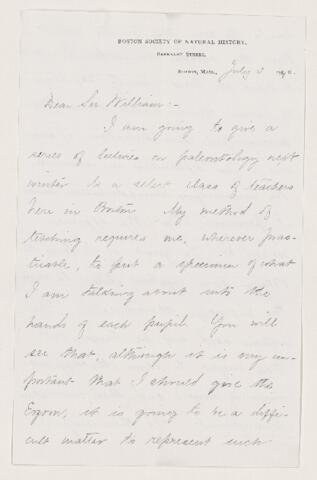 BOSTON SOCIETY OF NATURAL HISTORY,
BERKELEY STREET.
BOSTON, MASS., July 3
Dear Sir William:-
I am going to give a
series of lectures on paleontology next
winter to a select class of teachers
here in Boston. My method of
teaching requires me, wherever prac-
ticable, to put a specimen of what
I am talking about into the
hands of each pupil. You will
see that, although it is very im-
portant that I should give the
Eozoon, it is going to be a diffi-
cult matter to represent such